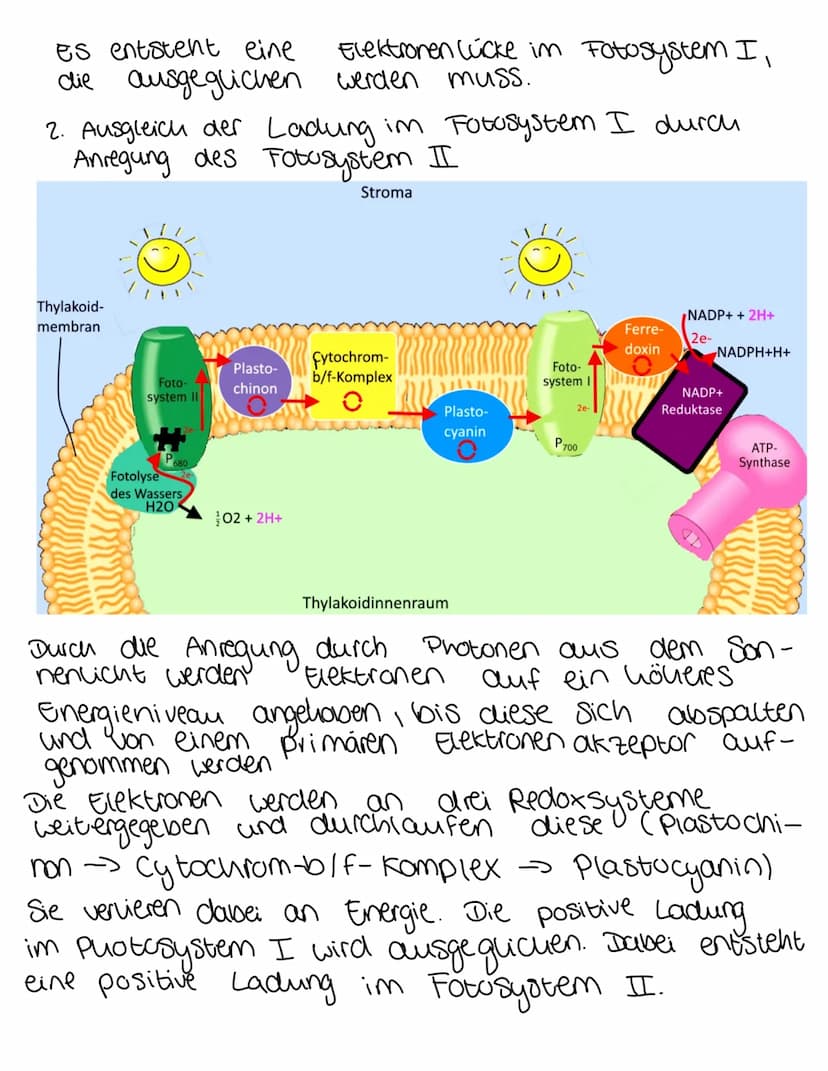 Es entsteht eine Elektronenlücke im Fotosystem I,
die ausgeglichen werden muss.
2. Ausgleich der Ladung im Fotosystem I durch
Anregung des Fotosystem II
Stroma
Thylakoid-
membran
Foto-
system II
2e-
P680
Fotolyse
des Wassers
2e-
H2O
½O2 + 2H+
Plasto-
chinon
Cytochrom-
b/f-Komplex
Plasto-
cyanin
Foto-
system I
2e-
P700
Ferre-
doxin
NADP+ + 2H+
2e-
NADPH+H+
NADP+
Reduktase
ATP-
Synthase
Thylakoidinnenraum
Durch die Anregung durch Photonen aus dem Son-
nenlicht werden Elektronen auf ein höheres
Energieniveau angehoben, bis diese sich abspalten
und von einem primären Elektronenakzeptor auf-
genommen werden
Die Elektronen werden an drei Redoxsysteme
weitergegeben und durchlaufen diese (Plastochi-
non -> Cytochrom-b/f-Komplex -> Plastocyanin)
Sie verlieren dabei an Energie. Die positive Ladung
im Photosystem I wird ausgeglichen. Dabei entsteht
eine positive Ladung im Fotosystem II.